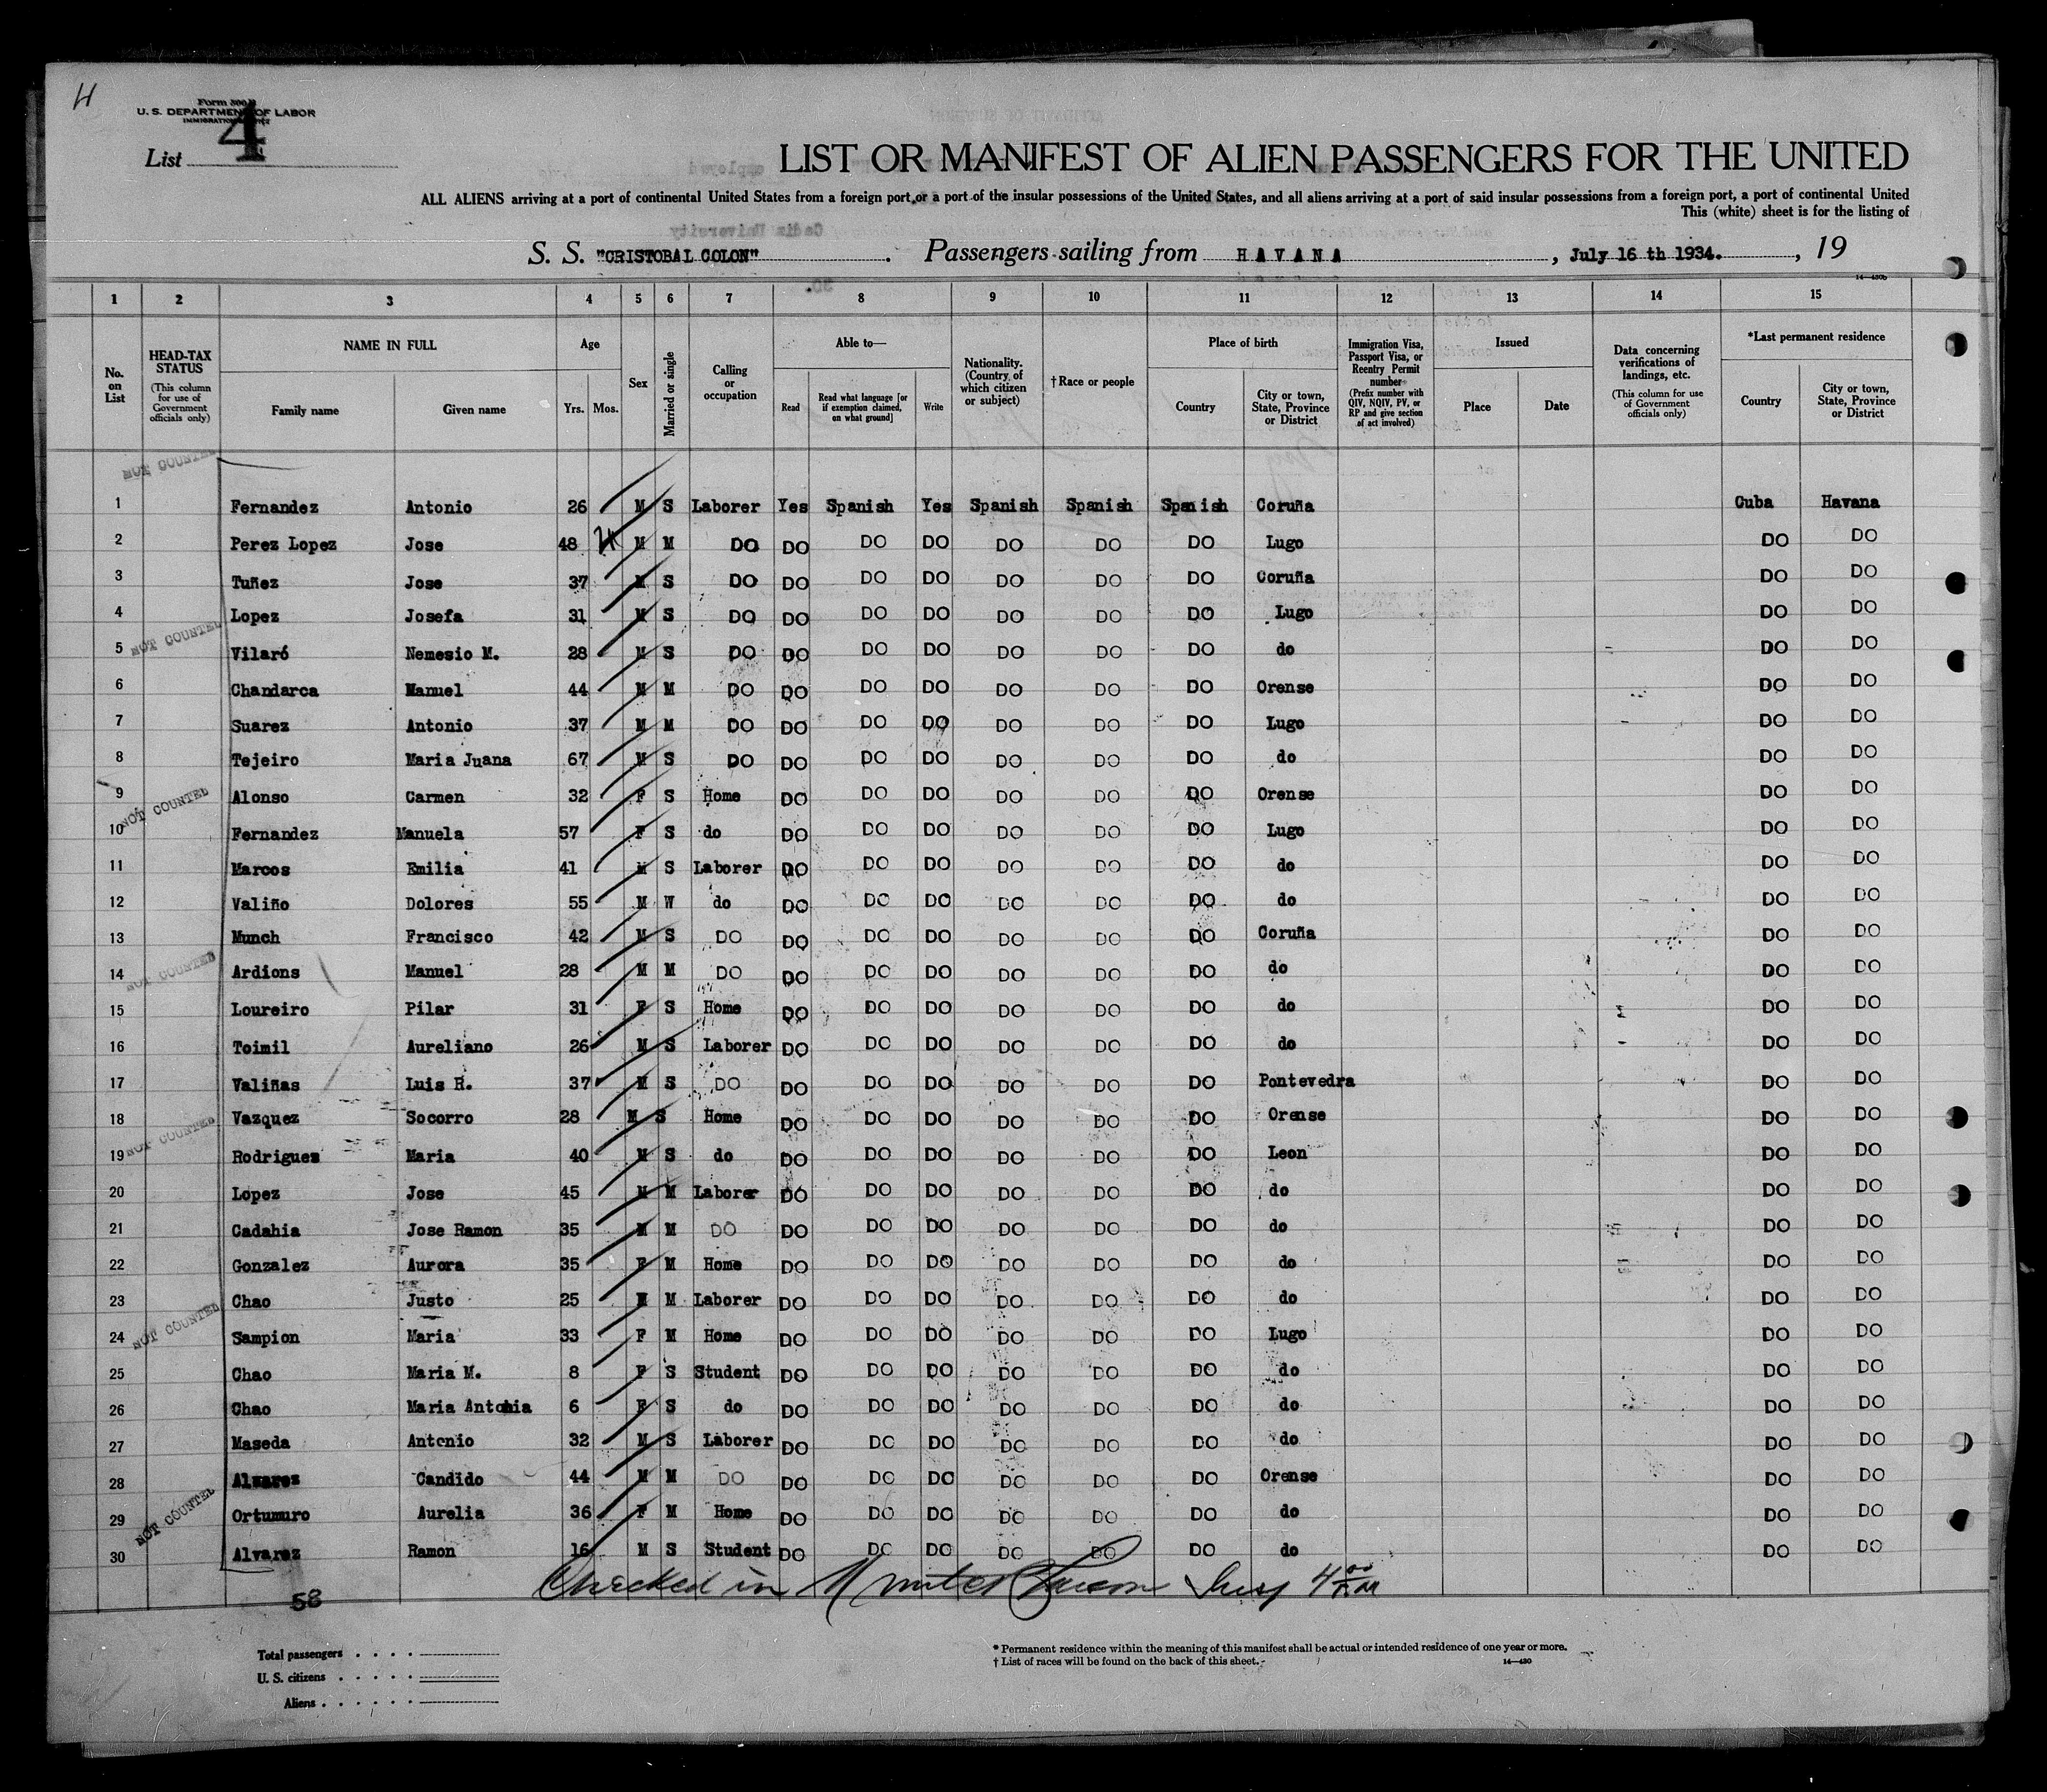 4
Form 500
U. S. DEPARTMENT OF LABOR
IMMIGRATION
List 4
LIST OR MANIFEST OF ALIEN PASSENGERS FOR THE UNITED
ALL ALIENS arriving at a port of continental United States from a foreign port or a port of the insular possessions of the United States, and all aliens arriving at a port of said insular possessions from a foreign port, a port of continental United
This (white) sheet is for the listing of
S. S. "CRISTOBAL COLON" . Passengers sailing from HAVANA , July 16 th 1934. , 19
1 2 3 4 5 6 7 8 9 10 11 12 13 14 15
No. on List
HEAD-TAX STATUS (This column for use of Government officials only)
NAME IN FULL Family name Given name
Age Yrs. Mos.
Sex
Married or single
Calling or occupation
Able to— Read Read what language [or if exemption claimed, on what ground] Write
Nationality. (Country of which citizen or subject)
†Race or people
Place of birth Country City or town, State, Province or District
Immigration Visa, Passport Visa, or Reentry Permit number (Prefix number with QIV, NQIV, PV, or RP and give section of act involved)
Issued Place Date
Data concerning verifications of landings, etc. (This column for use of Government officials only)
*Last permanent residence Country City or town, State, Province or District
NOT COUNTED
1 Fernandez Antonio 26 M S Laborer Yes Spanish Yes Spanish Spanish Spanish Coruña Cuba Havana
2 Perez Lopez Jose 48 M M DO DO DO DO DO DO DO Lugo DO DO
3 Tuñez Jose 37 M S DO DO DO DO DO DO DO Coruña DO DO
4 Lopez Josefa 31 M S DO DO DO DO DO DO DO Lugo DO DO
NOT COUNTED
5 Vilaró Nemesio M. 28 M S DO DO DO DO DO DO DO do DO DO
6 Chandarca Manuel 44 M M DO DO DO DO DO DO DO Orense DO DO
7 Suarez Antonio 37 M M DO DO DO DO DO DO DO Lugo DO DO
8 Tejeiro Maria Juana 67 M S DO DO DO DO DO DO DO do DO DO
9 Alonso Carmen 32 F S Home DO DO DO DO DO DO Orense DO DO
NOT COUNTED
10 Fernandez Manuela 57 F S do DO DO DO DO DO DO Lugo DO DO
11 Marcos Emilia 41 M S Laborer DO DO DO DO DO DO do DO DO
12 Valiño Dolores 55 M W do DO DO DO DO DO DO do DO DO
13 Munch Francisco 42 M S DO DO DO DO DO DO DO Coruña DO DO
NOT COUNTED
14 Ardions Manuel 28 M M DO DO DO DO DO DO DO do DO DO
15 Loureiro Pilar 31 F S Home DO DO DO DO DO DO do DO DO
16 Toimil Aureliano 26 M S Laborer DO DO DO DO DO DO do DO DO
17 Valiñas Luis R. 37 M S DO DO DO DO DO DO DO Pontevedra DO DO
18 Vazquez Socorro 28 M S Home DO DO DO DO DO DO Orense DO DO
NOT COUNTED
19 Rodriguez Maria 40 M S do DO DO DO DO DO DO Leon DO DO
20 Lopez Jose 45 M M Laborer DO DO DO DO DO DO do DO DO
21 Cadahia Jose Ramon 35 M M DO DO DO DO DO DO DO do DO DO
22 Gonzalez Aurora 35 F M Home DO DO DO DO DO DO do DO DO
23 Chao Justo 25 M M Laborer DO DO DO DO DO DO do DO DO
NOT COUNTED
24 Sampion Maria 33 F M Home DO DO DO DO DO DO Lugo DO DO
25 Chao Maria M. 8 F S Student DO DO DO DO DO DO do DO DO
26 Chao Maria Antonia 6 F S do DO DO DO DO DO DO do DO DO
27 Maseda Antonio 32 M S Laborer DO DO DO DO DO DO do DO DO
28 Alvarez Candido 44 M M DO DO DO DO DO DO DO Orense DO DO
NOT COUNTED
29 Ortumuro Aurelia 36 F M Home DO DO DO DO DO DO do DO DO
30 Alvarez Ramon 16 M S Student DO DO DO DO DO DO do DO DO
Checked in Insp 4 00 P.M
58
Total passengers
U. S. citizens
Aliens
* Permanent residence within the meaning of this manifest shall be actual or intended residence of one year or more.
† List of races will be found on the back of this sheet.
14—430